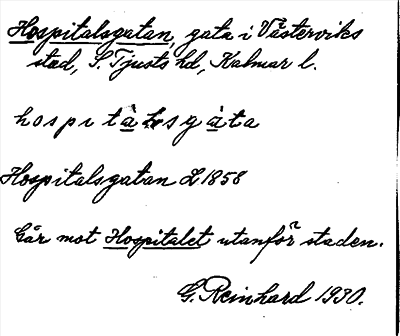 Hospitalsgatan, gata i Västerviks
stad, S. Tjusts hd, Kalmar l.
hospitàlsgàta
Hospitalsgatan L 1858
Går mot Hospitalet utanför staden.
G. Reinhard 1930.